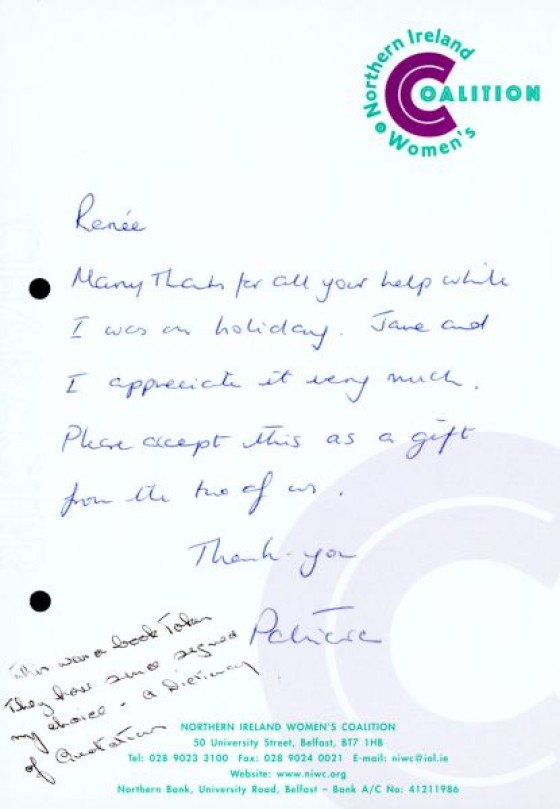 Northern Ireland
COALITION
Women's
Renée
Many Thanks for all your help while
I was on holiday. Jane and
I appreciate it very much.
Please accept this as a gift
from the two of us.
Thank-you
Patricia
This was a book Token
They have since signed
my choice - a Dictionary
of Quotations
NORTHERN IRELAND WOMEN'S COALITION
50 University Street, Belfast, BT7 1HB
Tel: 028 9023 3100 Fax: 028 9024 0021 E-mail: niwc@iol.ie
Website: www.niwc.org
Northern Bank, University Road, Belfast – Bank A/C No: 41211986